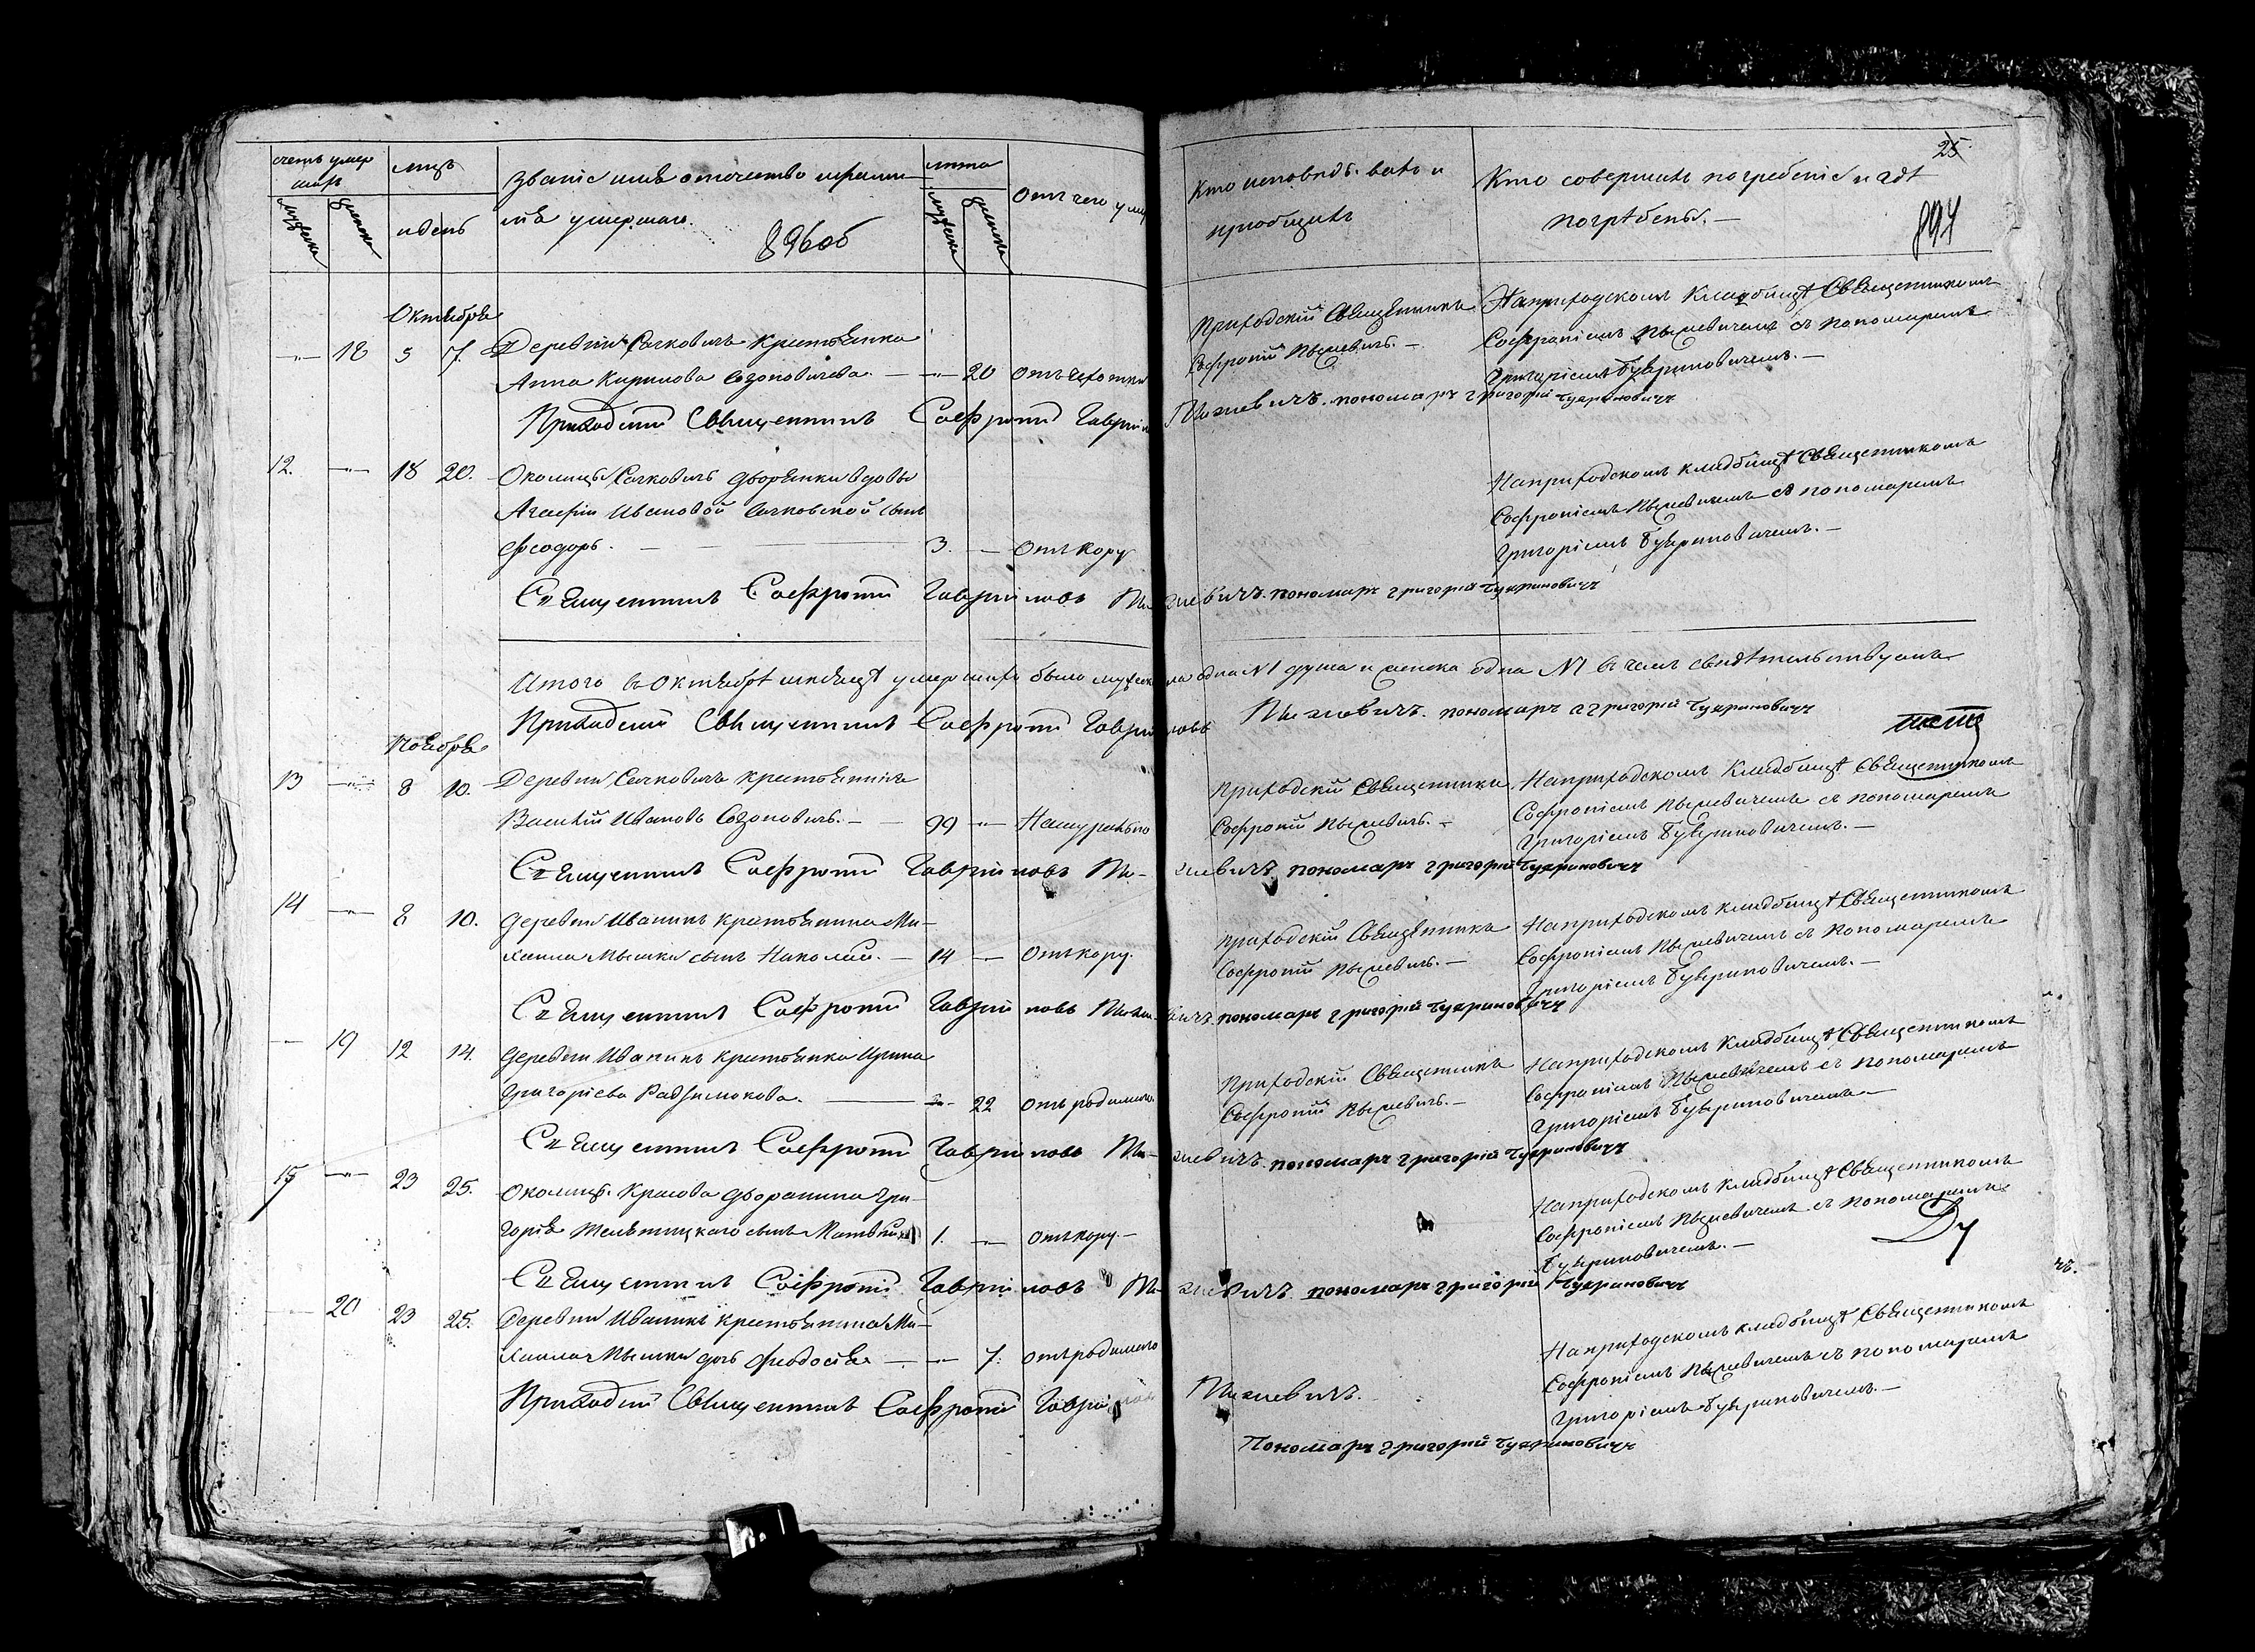 счетъ умер
шихъ
мужеска
женска
мцъ
и день
Званіе имя отечество и фамил
ія умершаго.
896об
лѣта
мужеска
женска
Отъ чего уме
Кто исповѣдывалъ и
пріобщалъ
Кто совершалъ погребеніе и гдѣ
погрѣбены. —
25
897
Октября
— 18 5 7. Деревни Сачковичъ крестьянка
Анна Кирилова Созоновичева. — — 20 Отъ чахотки
Приходскій Священникъ
Софроній Пыжевичъ. —
На приходскомъ кладбищѣ Священникомъ
Софроніемъ Пыжевичемъ съ пономаремъ
Григоріемъ Буериновичемъ. —
Приходскій Священникъ Софроній Гаврііловъ Пыжевичъ. пономарь григорій буериновичъ
12. — 18 20. Околицы Сачковичъ дворянки вдовы
Агафіи Ивановой Сачковской сынъ
Феодоръ. — 3. — Отъ кору
На приходскомъ кладбищѣ Священникомъ
Софроніемъ Пыжевичемъ съ пономаремъ
Григоріемъ Буериновичемъ. —
Священникъ Софроній Гаврііловъ Пыжевичъ. пономарь григорій буериновичъ
Итого въ Октябрѣ месяцѣ умершихъ было мужеска одна №1 душа и женска одна №1 въ чемъ свидѣтельствуемъ
Приходскій Священникъ Софроній Гаврііловъ Пыжевичъ. пономарь григорій буериновичъ
Ноября
13 — 8 10. Деревни Сачковичъ крестьянинъ
Василій Ивановъ Созоновичъ. — 99 — Натурально
Приходскій Священникъ
Софроній Пыжевичъ. —
На приходскомъ кладбищѣ Священникомъ
Софроніемъ Пыжевичемъ съ пономаремъ
Григоріемъ Буериновичемъ. —
Священникъ Софроній Гаврііловъ Пыжевичъ пономарь григорій буериновичъ
14 — 8 10. Деревни Иваникъ крестьянина Ми-
хаила Мышки сынъ Николай. — 14 — Отъ кору.
Приходскій Священникъ
Софроній Пыжевичъ. —
На приходскомъ кладбищѣ Священникомъ
Софроніемъ Пыжевичемъ съ пономаремъ
Григоріемъ Буериновичемъ. —
Священникъ Софроній Гаврііловъ Пыжевичъ пономарь григорій буериновичъ
— 19 12 14. Деревни Иваникъ крестьянка Ирина
Григоріева Радзимокова. — 22 Отъ родимаго
Приходскій Священникъ
Софроній Пыжевичъ. —
На приходскомъ кладбищѣ Священникомъ
Софроніемъ Пыжевичемъ съ пономаремъ
Григоріемъ Буериновичемъ —
Священникъ Софроній Гаврііловъ Пыжевичъ. пономарь григорій буериновичъ
15 — 23 25. Околицы Красова дворянина Гри-
горія сынъ Матвѣй 1. — Отъ кору. —
На приходскомъ кладбищѣ Священникомъ
Софроніемъ Пыжевичемъ съ пономаремъ
Буериновичемъ. —
Священникъ Софроній Гаврііловъ Пыжевичъ. пономарь григорій буериновичъ
— 20 23 25. Деревни Иваникъ крестьянина Ми-
хаила Мышки дочь Феодосія — — 7. отъ родимаго
На приходскомъ кладбищѣ Священникомъ
Софроніемъ Пыжевичемъ съ пономаремъ
Григоріемъ Буериновичемъ. —
Приходскій Священникъ Софроній Гаврііловъ Пыжевичъ.
Пономарь григорій буериновичъ